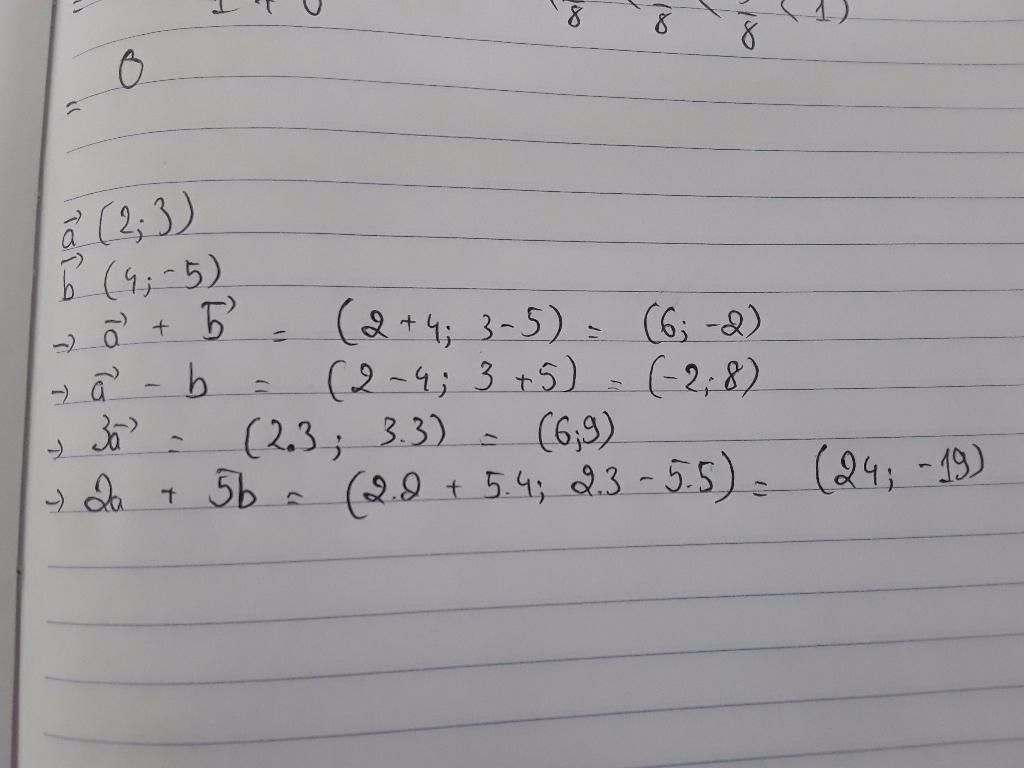 = 0
a⃗ (2; 3)
b⃗ (4; -5)
→ a⃗ + b⃗ = (2 + 4; 3 - 5) = (6; -2)
→ a⃗ - b = (2 - 4; 3 + 5) = (-2; 8)
→ 3a⃗ = (2.3; 3.3) = (6;9)
→ 2a + 5b = (2.2 + 5.4; 2.3 - 5.5) = (24; -19)